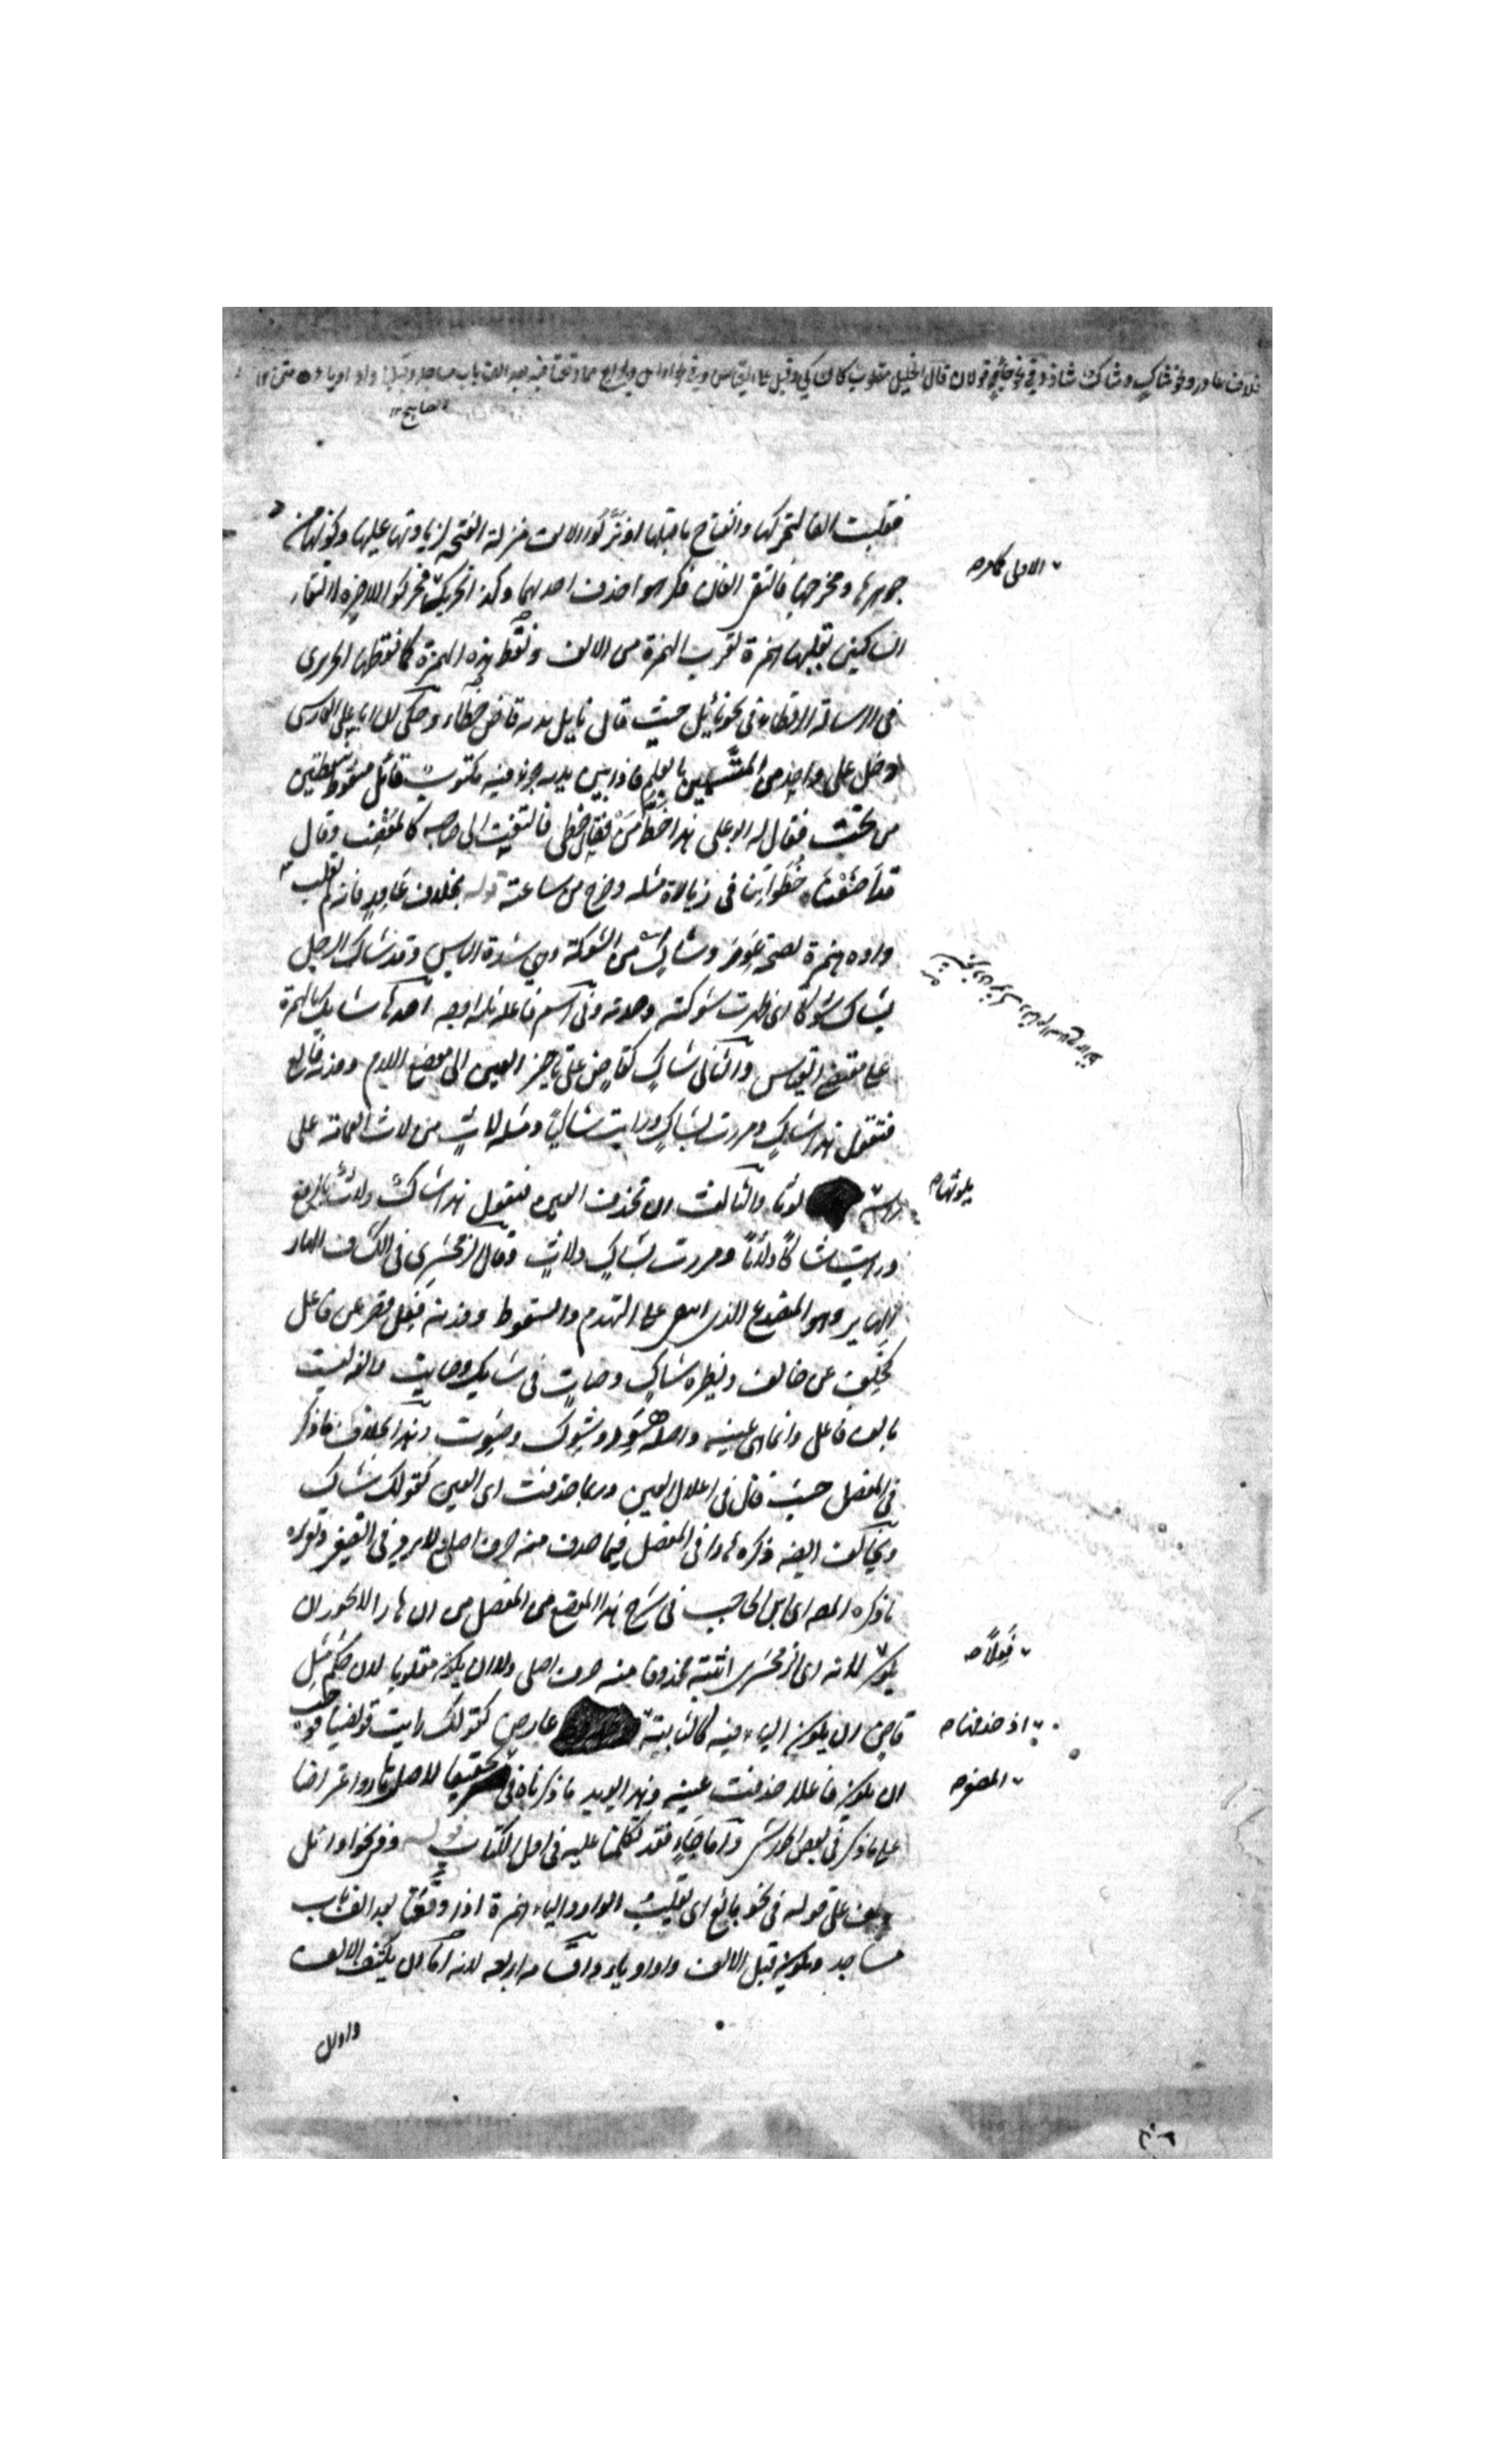 بخلاف عاور ونحو شاك وشاك شاذ وفي نحو جاء قولان قال الخليل مقلوب كالشاكي وقيل على القياس وفي نحو اوائل وبوايع مما وقعتا فيه بعد الف باب مساجد وقبلها واو او ياء متن
فقلبت الفا لتحركها وانفتاح ما قبلها او نزلوا الالف منزلة الفتحة لزيادتها عليها وكونها من
جوهرها ومخرجها فالتقى الفان فكرهوا حذف احدهما وكذا تحريك فحركوا الاخيرة لالتقاء
الاولى كما مر
الساكنين بقلبها همزة لقرب الهمزة من الالف ونقط هذه الهمزة كما نقطها الحريري
في الرسالة الرقطاء في نحو نائيل حيث قال نايل يديه فاض خطاء وحكي ان ابا علي الفارسي
دخل على واحد من المتسمين بالعلم فاذا بين يديه جزء فيه مكتوب قائل منقوط بنقطتين
من تحت فقال له ابو علي هذا خط من فقال خطي فالتفت الى صاحبه كالمغضب وقال
قد اضعنا خطواتنا في زيارة مثله وخرج من ساعته قوله بخلاف عاور فانه لم تقلب
واوه همزة لصحة عور وشاك من الشوكة وهي شدة الباس وقد شاك الرجل
يشاك شوكا اي ظهرت شوكته وحدته وفي اسم فاعله ثلثة اوجه احدها شايك بالهمزة
على مقتضى القياس والثاني شاك كقاض على تاخير العين الى موضع اللام ووزنه فالع
فتقول هذا شاك ومررت بشاك ورايت شاكيا ومثله لاث من لاث العمامة على
راسه لوثا والثالث ان تحذف العين فتقول هذا شاك ولاث بالرفع
يلوثها
ورايت شاكا ولاثا ومررت بشاك ولاث وقال الزمخشري في الكشاف الهار
الهاير وهو المتصدع الذي اشفى على التهدم والسقوط ووزنه فعل قصر عن فاعل
كخلف عن خالف ونظيره شاك وصات في شايك وصايت والفه ليست
بالف فاعل وانما هي عينه واصله هور وشوك وصوت وهذا بخلاف ما ذكر
في المفصل حيث قال في اعلال العين وربما حذفت اي العين كقولك شاك
ويخالف ايضا ذكره هارا في المفصل فيما حذف منه حرف اصلي للابرد في التصغير وتقريره
ما ذكره المصـ اي ابن الحاجب في شرح هذا الموضع من المفصل من ان هارا لا يجوز ان
يكون لانه اي الزمخشري اثبته محذوفا منه حرف اصلي ولا ان يكون مقلوبا لان حكم مثل
فعلا
قاض ان يكون الياء فيه كالثابتة عارض كقولك رايت قويضيا فوجب
اذ حذفها
ان يكون فاعلا حذفت عينه وهذا يويد ما ذكرناه في تحقيقا لاصل هار واعتراضا
المصغر
على ما ذكر في بعض الحواشي واما جاء فقد تكلمنا عليه في اول الكتاب قوله وفي نحو اوائل
عطف على قوله في نحو بائع اي تقلب الواو والياء همزة اذا وقعتا بعد الف باب
مساجد ويكون قبل الالف واو او ياء واقسامه اربعة لانه اما ان يكتنف الالف
واوان